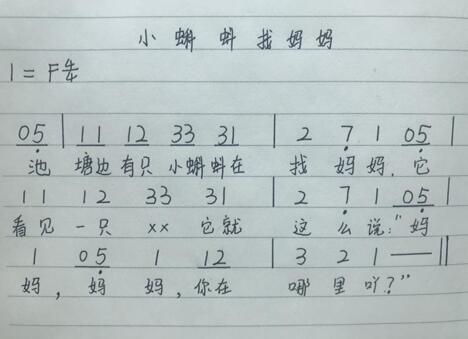 小蝌蚪找妈妈
1=F 4/4
05 | 11 12 33 31 | 2 7 1 05 |
池 塘边 有只 小蝌蚪在 找 妈妈,它
11 12 33 31 | 2 7 1 05 |
看见 一只 xx 它就 这么说:"妈
1 05 1 12 | 3 2 1 — ||
妈,妈 妈,你在 哪里吖?"